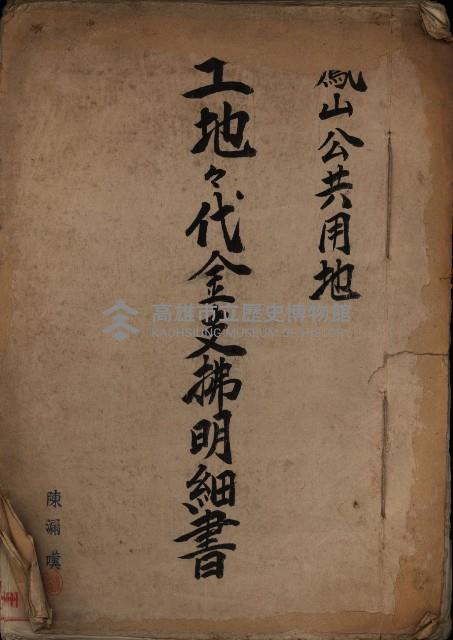 鳳山公共用地
工地々代金支拂明細書
陳漏嘆
高雄市立歷史博物館
KAOHSIUNG MUSEUM OF HISTORY
州